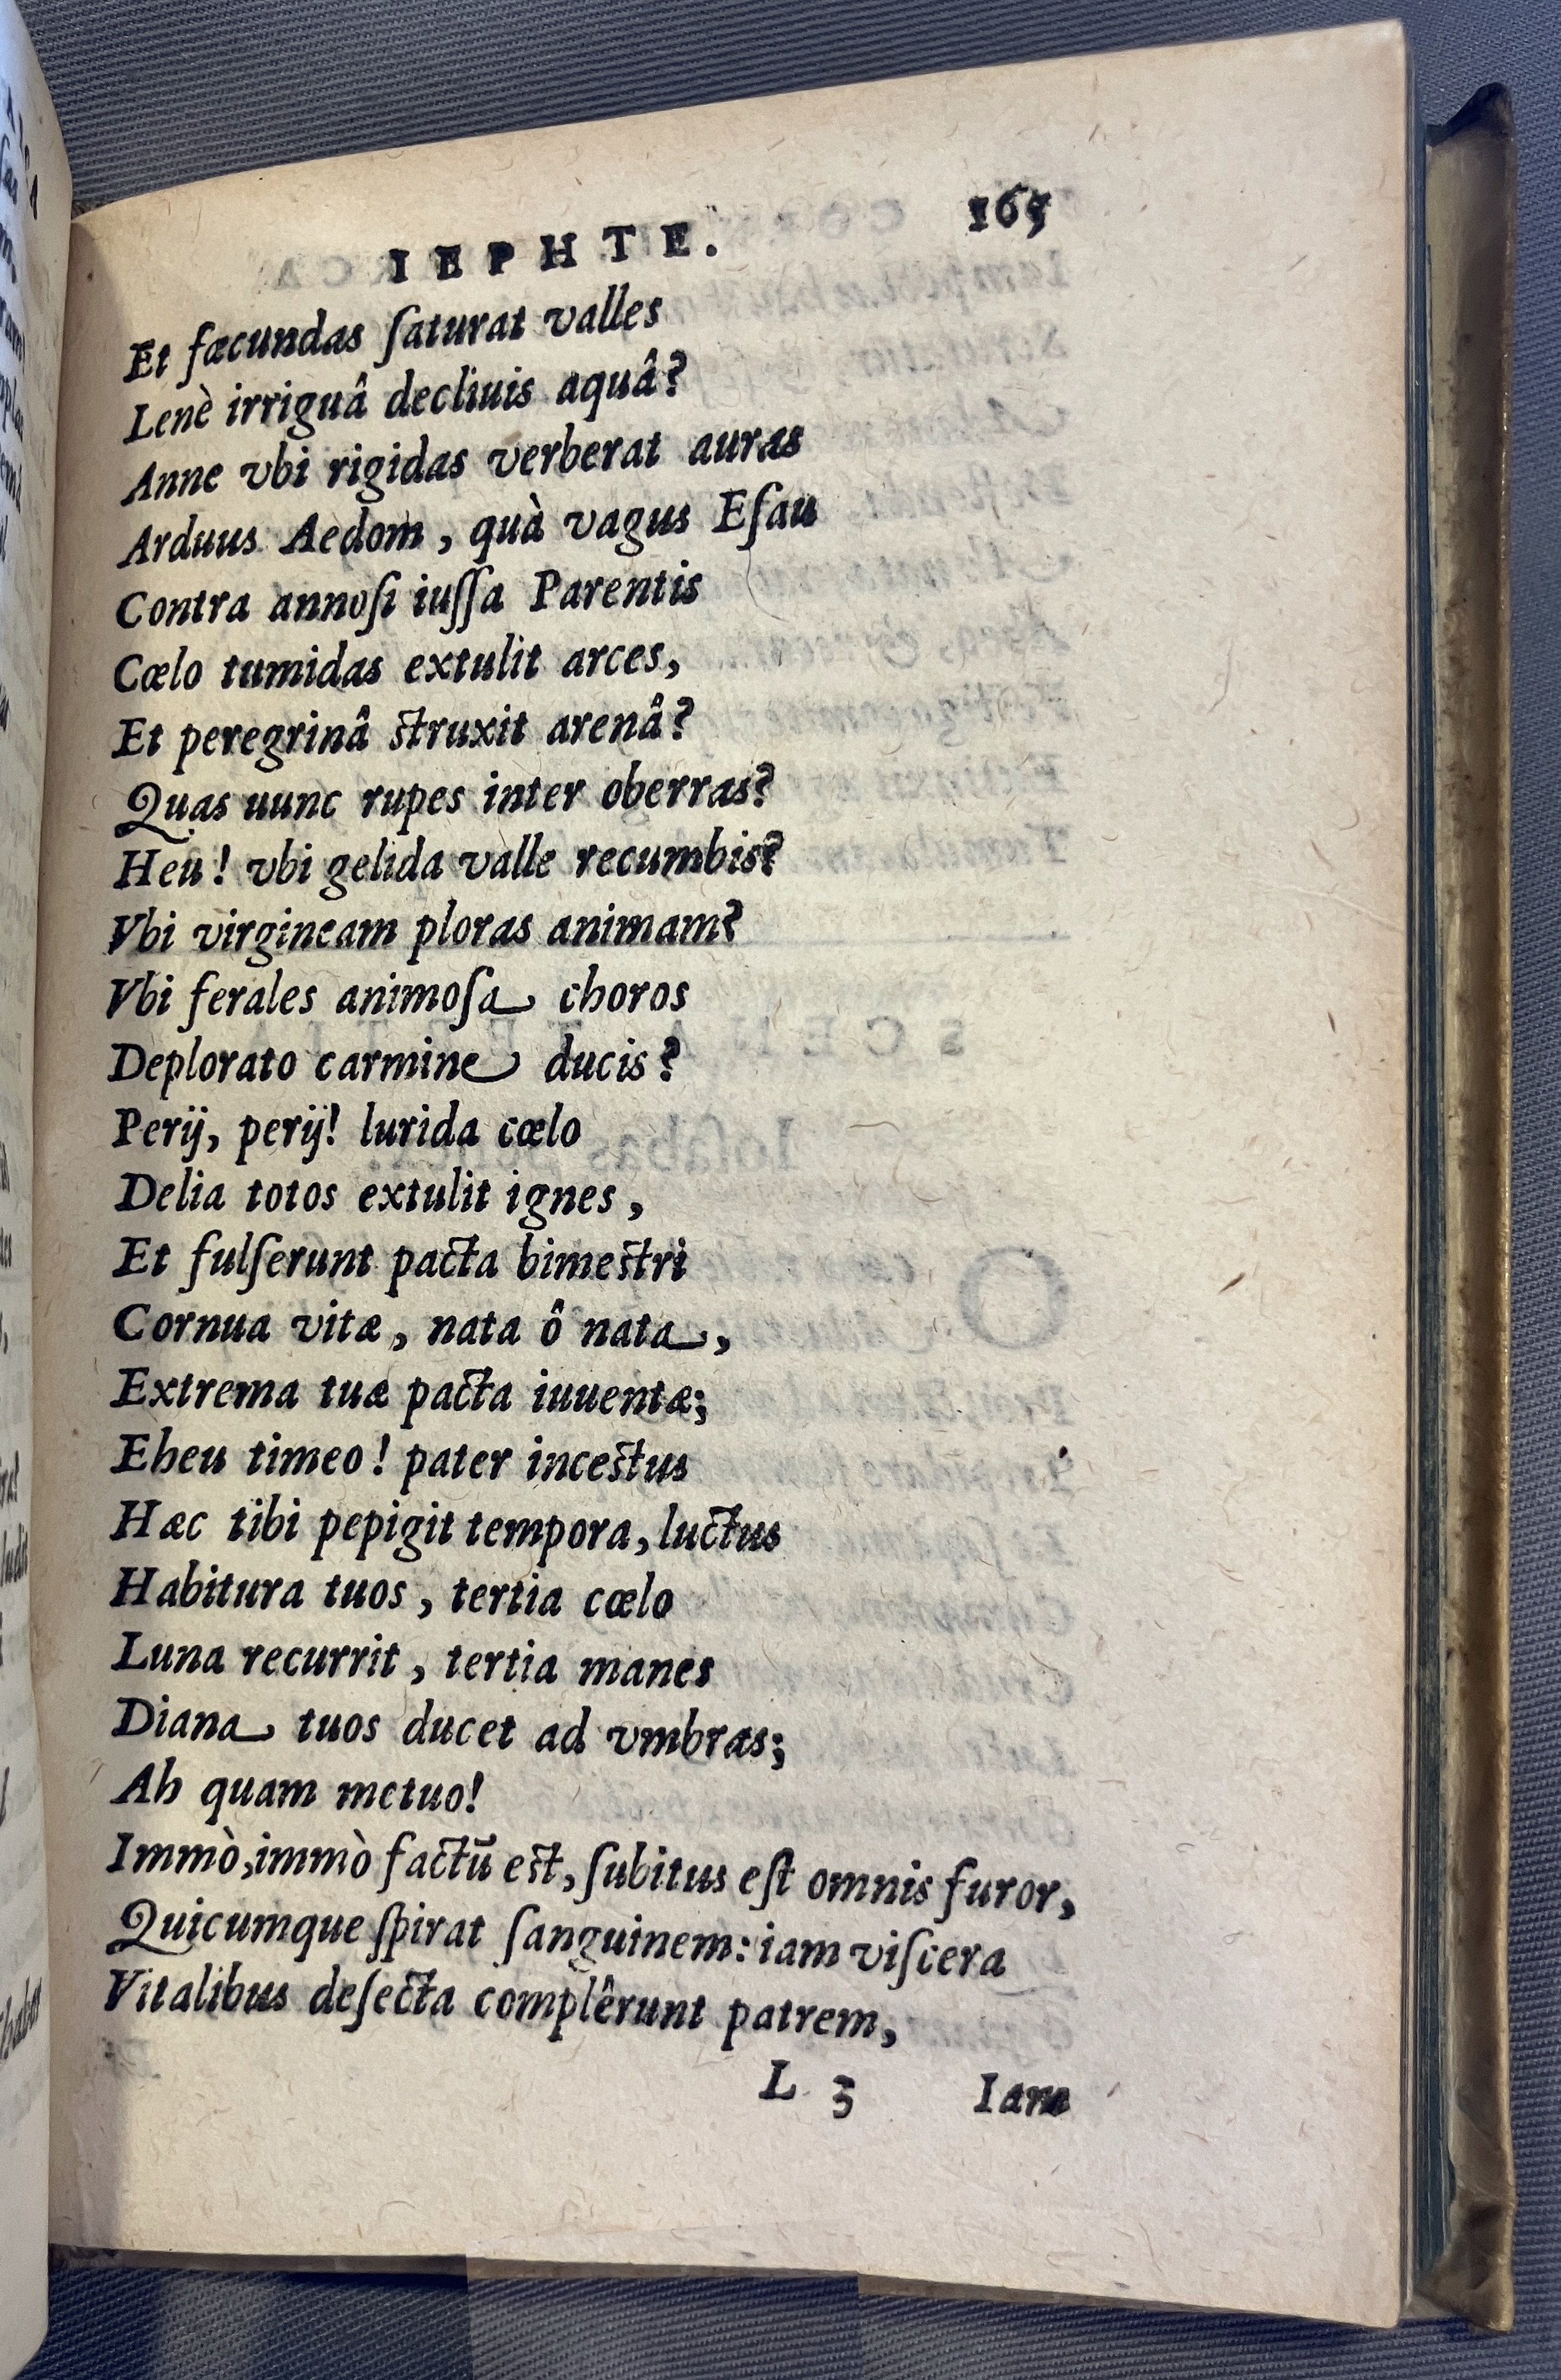 IEPHTE. 165
Et fæcundas ſaturat valles
Lenè irriguâ decliuis aquâ?
Anne vbi rigidas verberat auras
Arduus Aedom, quà vagus Eſau
Contra annoſi iuſſa Parentis
Cœlo tumidas extulit arces,
Et peregrinâ struxit arenâ?
Quas uunc rupes inter oberras?
Heu! vbi gelida valle recumbis?
Vbi virgineam ploras animam?
Vbi ferales animoſa choros
Deplorato carmine ducis?
Perij, perij! lurida cœlo
Delia totos extulit ignes,
Et fulſerunt pacta bimestri
Cornua vitæ, nata ô nata,
Extrema tuæ pacta iuuentæ;
Eheu timeo! pater incestus
Hæc tibi pepigit tempora, luctus
Habitura tuos, tertia cœlo
Luna recurrit, tertia manes
Diana tuos ducet ad vmbras;
Ah quam metuo!
Immò, immò factū est, ſubitus eſt omnis furor,
Quicumque ſpirat ſanguinem: iam viſcera
Vitalibus deſecta complêrunt patrem,
L 3 Iam